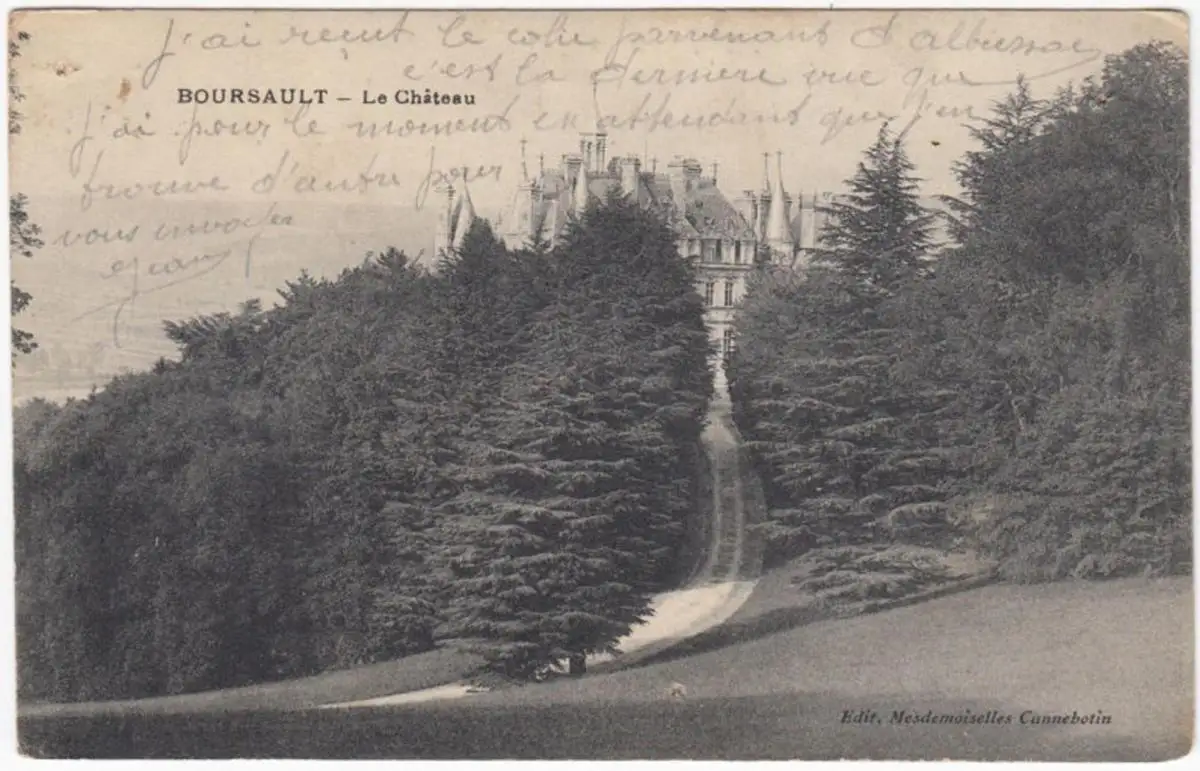 j'ai reçut le colie parvenant d'albussac
c'est la dernière vue que
BOURSAULT – Le Château
j'ai pour le moment en attendant que j'en
trouve d'autre pour
vous envoyer
Jean
Edit. Mesdemoiselles Cannebotin